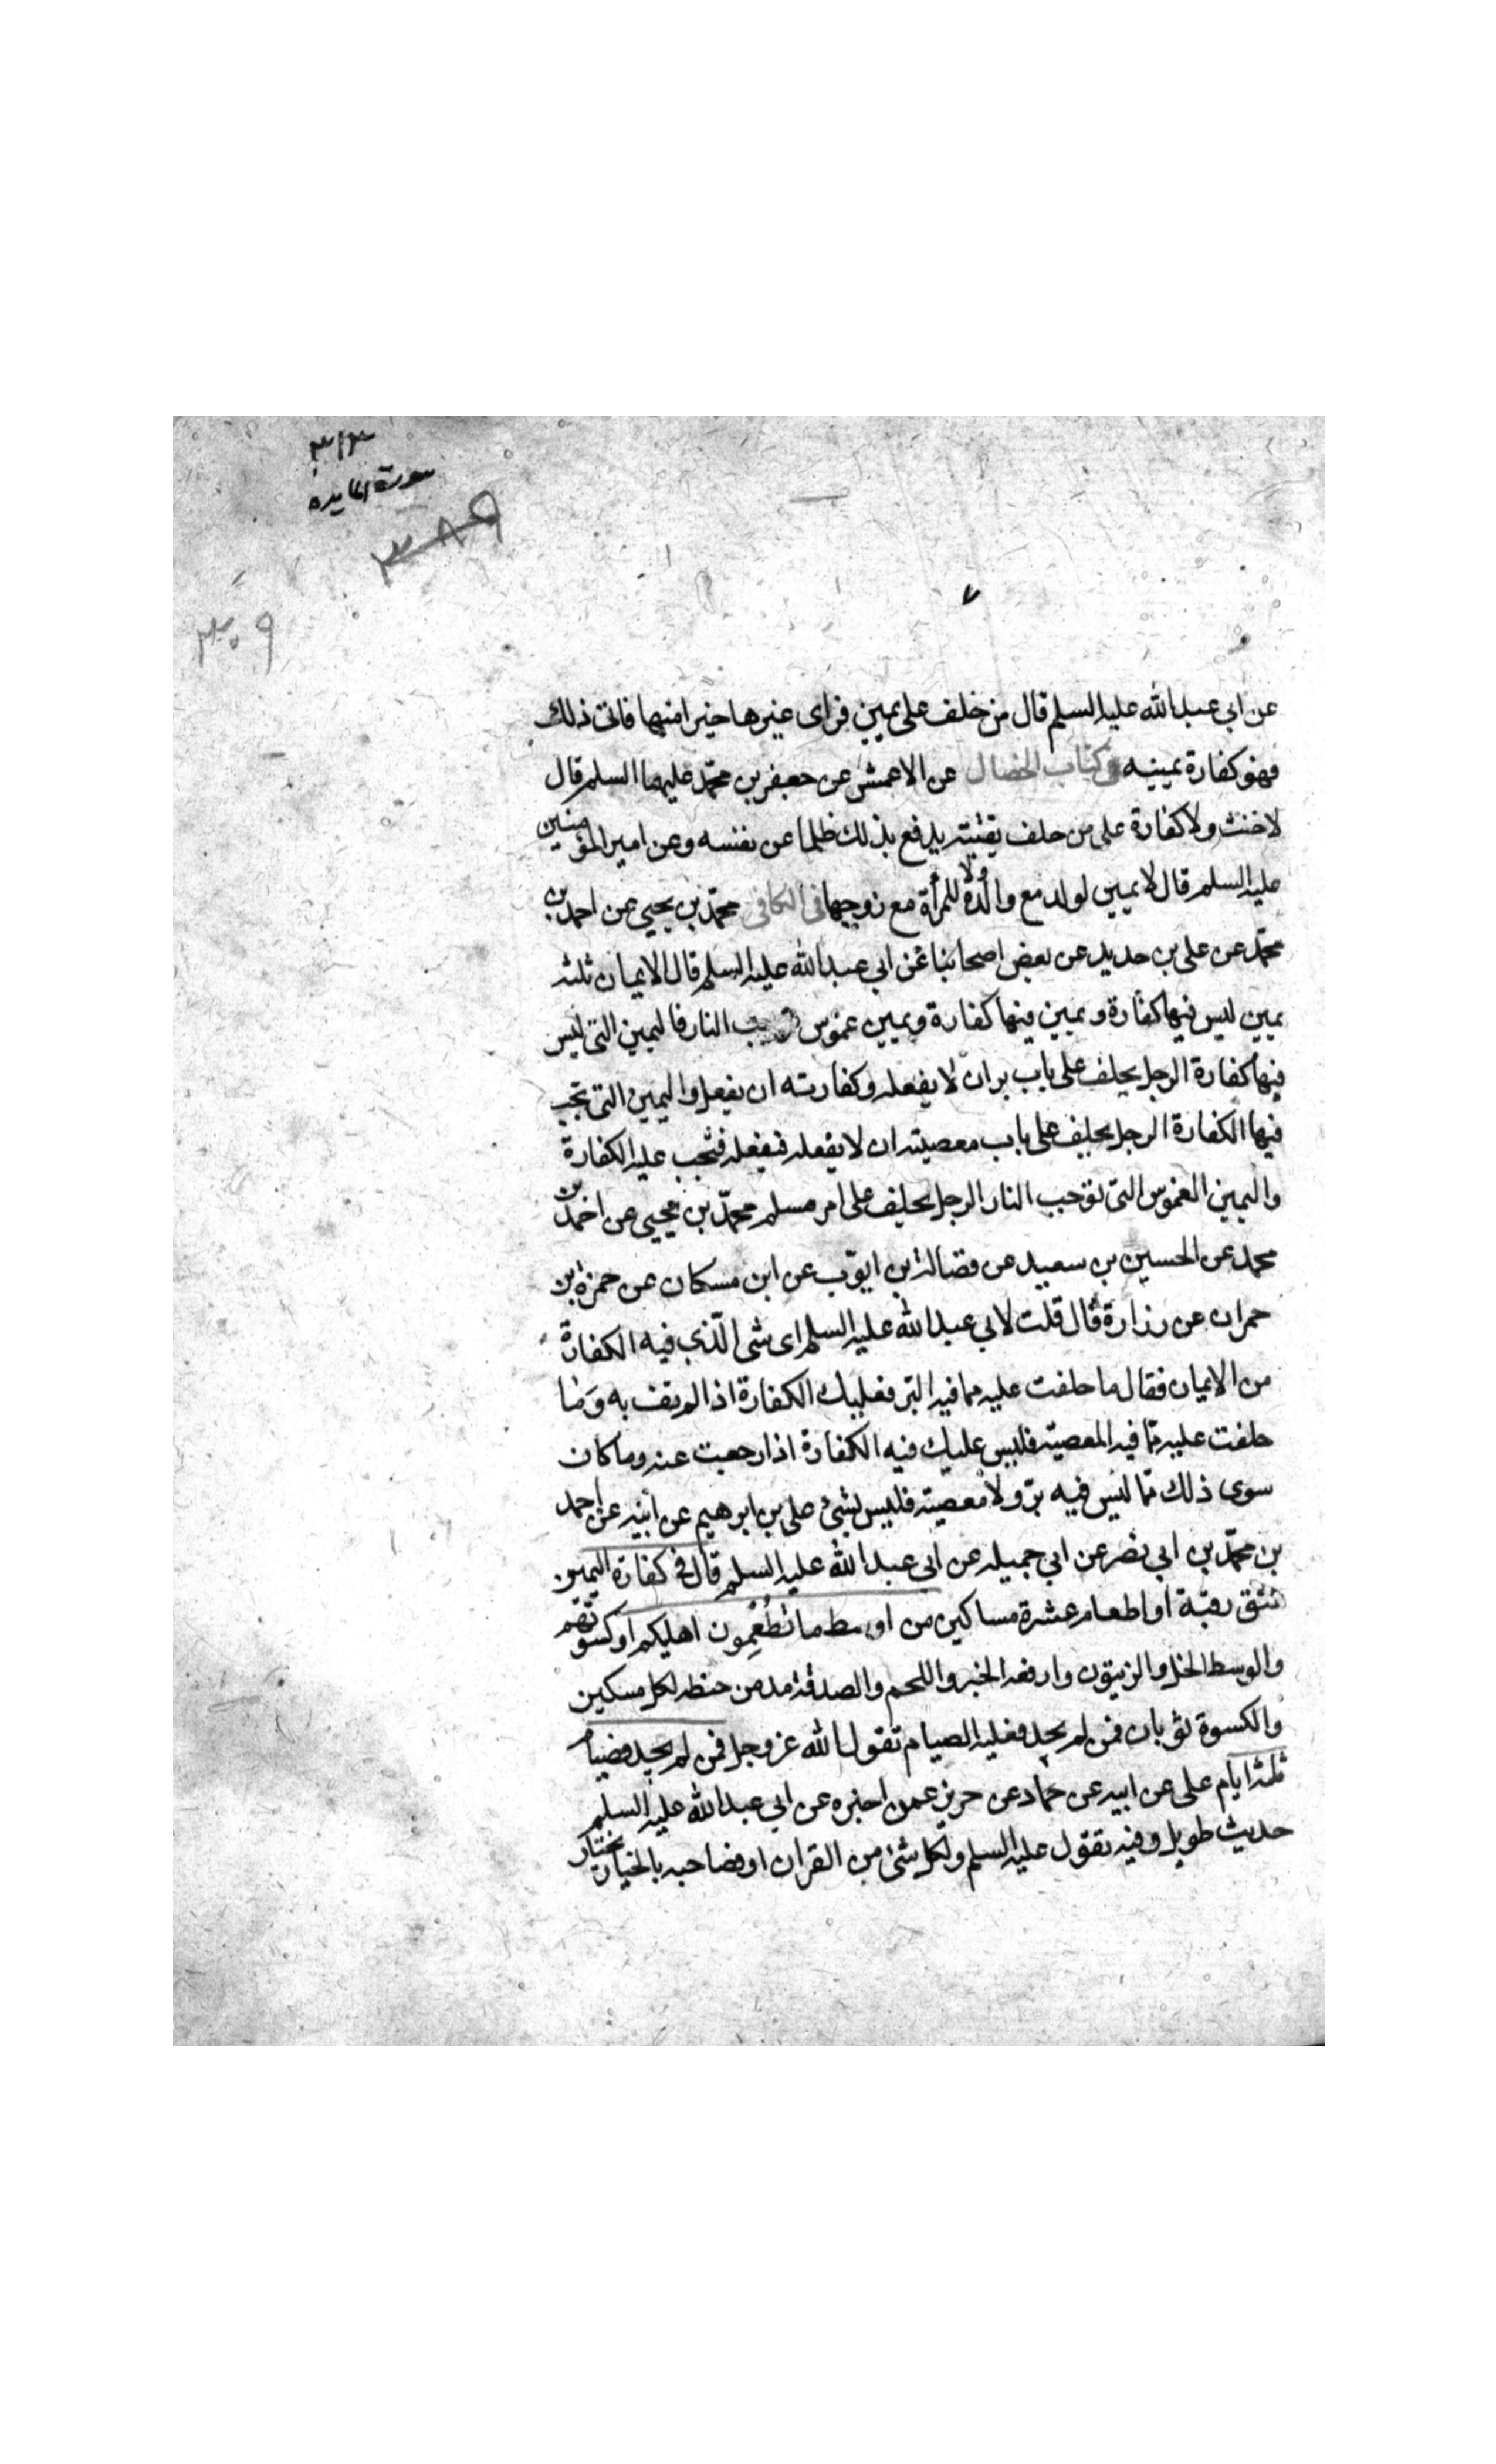 ٣١٣
سورة المايدة
٣٨٩
٣٠٩
عن ابي عبد الله عليه السلم قال من خلف على يمين فراى غيرها خيرا منها فاتى ذلك
فهو كفارة يمينه وفى كتاب الخصال عن الاعمش عن جعفر بن محمّد عليهما السلم قال
لا حنث ولا كفارة على من حلف تقيّة يدفع بذلك ظلما عن نفسه وعن امير المؤمنين
عليه السلم قال لا يمين لولد مع والده ولا للمرأة مع زوجها فى الكافى محمّد بن يحيى عن احمد بن
محمّد عن على بن حديد عن بعض اصحابنا عن ابي عبد الله عليه السلم قال الايمان ثلثه
يمين ليس فيها كفارة ويمين فيها كفارة ويمين غموس توجب النار فاليمين التى ليس
فيها كفارة الرجل يحلف على باب بر ان لا يفعله وكفارته ان يفعل واليمين التى تجب
فيها الكفارة الرجل يحلف على باب معصية ان لا يفعله فيفعله فتجب عليه الكفارة
واليمين الغموس التى توجب النار الرجل يحلف على امر مسلم محمّد بن يحيى عن احمد بن
محمد عن الحسين بن سعيد عن فضالة بن ايوّب عن ابن مسكان عن حمزة بن
حمران عن زرارة قال قلت لابي عبد الله عليه السلم اى شى الّذى فيه الكفارة
من الايمان فقال ما حلفت عليه مما فيه البّر فعليك الكفارة اذا لم تف به وما
حلفت عليه ممّا فيه المعصية فليس عليك فيه الكفارة اذا رجعت عنه وما كان
سوى ذلك ممّا ليس فيه برّ ولا معصية فليس بشئ على بن ابرهيم عن ابيه عن احمد
بن محمّد بن ابي نصر عن ابي جميله عن ابى عبد الله عليه السلم قال فى كفارة اليمين
عتق رقبة او اطعام عشرة مساكين من اوسط ما تُطْعِمُون اهليكم او كسوتهم
والوسط الخل والزيتون وارفعه الخبز واللحم والصدقة مد من حنطه لكل مسكين
والكسوة ثوبان فمن لم يجد فعليه الصيام تقول الله عز وجل فمن لم يجد فصيام
ثلثة ايام على عن ابيه عن حماد عن حريز عمن اخبره عن ابي عبد الله عليه السلم
حديث طويل وفيه يقول عليه السلم ولكل شئ من القران او فصاحبه بالخيار يختار